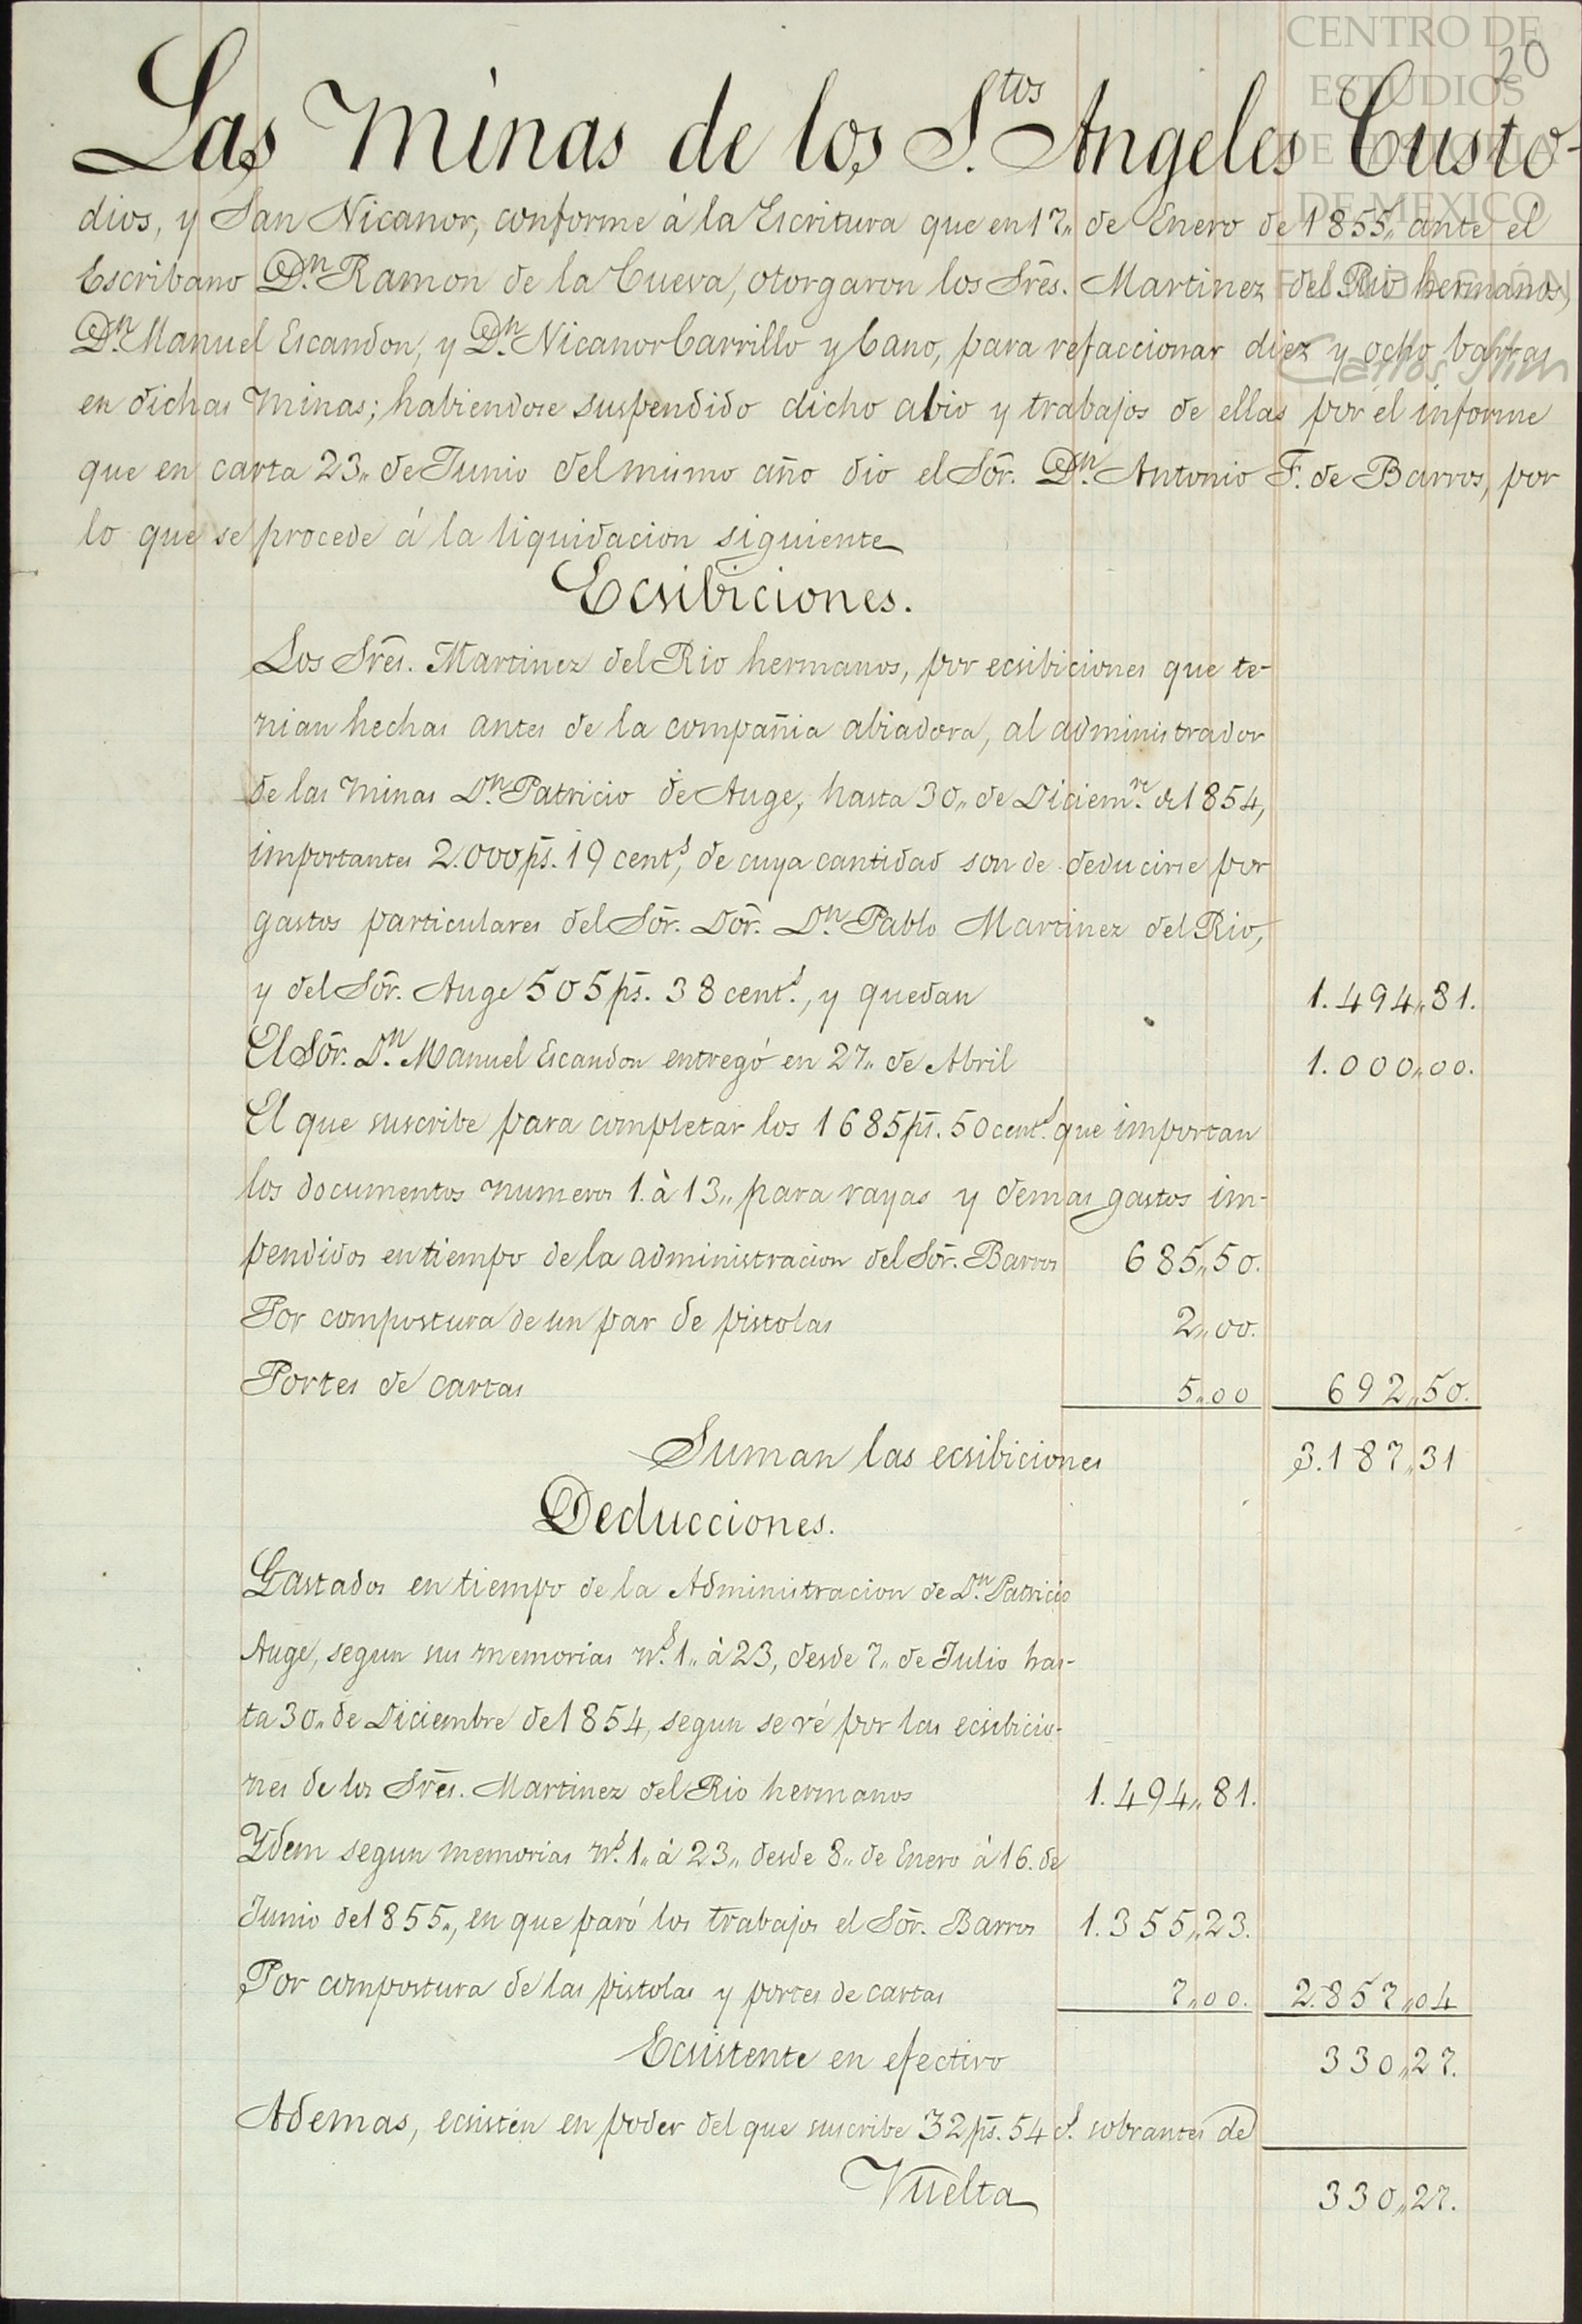 CENTRO DE
ESTUDIOS
DE HISTORIA
DE MEXICO
FUNDACIÓN
Carlos Slim
20
Las Minas de los S.tos Angeles Custo-
dios, y San Nicanor, conforme á la Escritura que en 17,, de Enero de 1855,, ante el
Escribano Dn. Ramon de la Cueva, otorgaron los Sres. Martinez del Rio hermanos,
Dn. Manuel Escandon, y Dn. Nicanor Carrillo y Cano, para refaccionar diez y ocho barras
en dichas Minas; habiendose suspendido dicho abio y trabajos de ellas por el informe
que en carta 23,, de Junio del mismo año dio el Sor. Dn. Antonio F. de Barros, por
lo que se procede á la liquidacion siguiente
Ecsibiciones.
Los Sres. Martinez del Rio hermanos, por ecsibiciones que te-
nian hechas antes de la compañia abiadora, al administrador
de las Minas Dn. Patricio de Auge, hasta 30,, de Diciem.re de 1854,
importantes 2.000 ps. 19 cents, de cuya cantidad son de deducirse por
gastos particulares del Sor. Dor. Dn. Pablo Martinez del Rio,
y del Sor. Auge 505 ps. 38 cents., y quedan 1.494,,81.
El Sor. Dn. Manuel Escandon entregó en 27,, de Abril 1.000,,00.
El que suscribe para completar los 1685 ps. 50 cents. que importan
los documentos numeros 1. à 13,, para rayas y demas gastos im-
pendidos en tiempo de la administracion del Sor. Barros 685,,50.
Por compostura de un par de pistolas 2,,00.
Portes de cartas 5,,00 692,,50.
Suman las ecsibiciones 3.187,,31
Deducciones.
Gastados en tiempo de la Administracion de Dn. Patricio
Auge, segun sus memorias ns. 1,, à 23, desde 7,, de Julio has-
ta 30,, de Diciembre de 1854, segun se vé por las ecsibicio-
nes de los Sres. Martinez del Rio hermanos 1.494,,81.
Ydem segun memorias ns. 1,, á 23,, desde 8,, de Enero à 16. de
Junio de 1855,, en que paró los trabajos el Sor. Barros 1.355,,23.
Por compostura de las pistolas y portes de cartas 7,,00. 2.857,,04
Ecsistente en efectivo 330,,27.
Ademas, ecsisten en poder del que suscribe 32 ps. 54 cs. sobrantes de
Vuelta 330,,27.